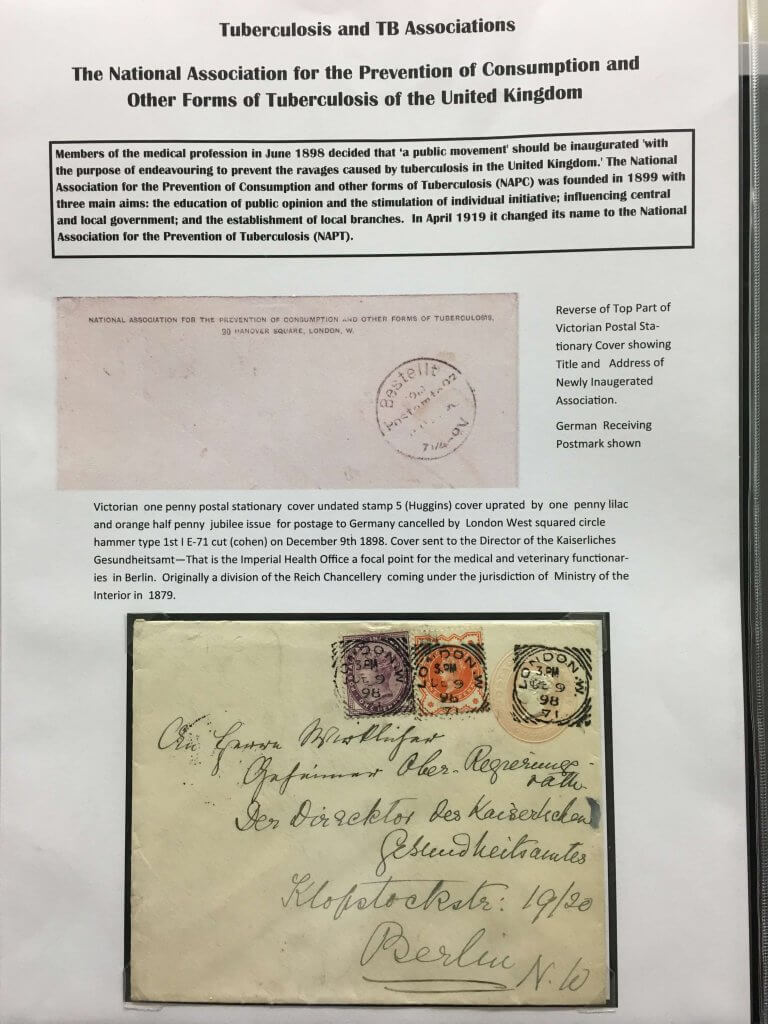 Tuberculosis and TB Associations
The National Association for the Prevention of Consumption and
Other Forms of Tuberculosis of the United Kingdom
Members of the medical profession in June 1898 decided that 'a public movement' should be inaugurated 'with
the purpose of endeavouring to prevent the ravages caused by tuberculosis in the United Kingdom.' The National
Association for the Prevention of Consumption and other forms of Tuberculosis (NAPC) was founded in 1899 with
three main aims: the education of public opinion and the stimulation of individual initiative; influencing central
and local government; and the establishment of local branches. In April 1919 it changed its name to the National
Association for the Prevention of Tuberculosis (NAPT).
NATIONAL ASSOCIATION FOR THE PREVENTION OF CONSUMPTION AND OTHER FORMS OF TUBERCULOSIS,
20 HANOVER SQUARE, LONDON, W.
Bestellt
Postamte
7 1/4-
Reverse of Top Part of
Victorian Postal Sta-
tionary Cover showing
Title and Address of
Newly Inaugerated
Association.
German Receiving
Postmark shown
Victorian one penny postal stationary cover undated stamp 5 (Huggins) cover uprated by one penny lilac
and orange half penny jubilee issue for postage to Germany cancelled by London West squared circle
hammer type 1st I E-71 cut (cohen) on December 9th 1898. Cover sent to the Director of the Kaiserliches
Gesundheitsamt—That is the Imperial Health Office a focal point for the medical and veterinary functionar-
ies in Berlin. Originally a division of the Reich Chancellery coming under the jurisdiction of Ministry of the
Interior in 1879.
LONDON.W.
3.PM
DE 9
98
LONDON.W.
3.PM
DE 9
98
71
LONDON.W.
3.PM
DE 9
98
71
An Herrn Wirklicher
Geheimer Ober-Regierungs-
rath
Der Direcktor des Kaiserlichen
Gesundheitsamtes
Klopstockstr: 19/20
Berlin N.W